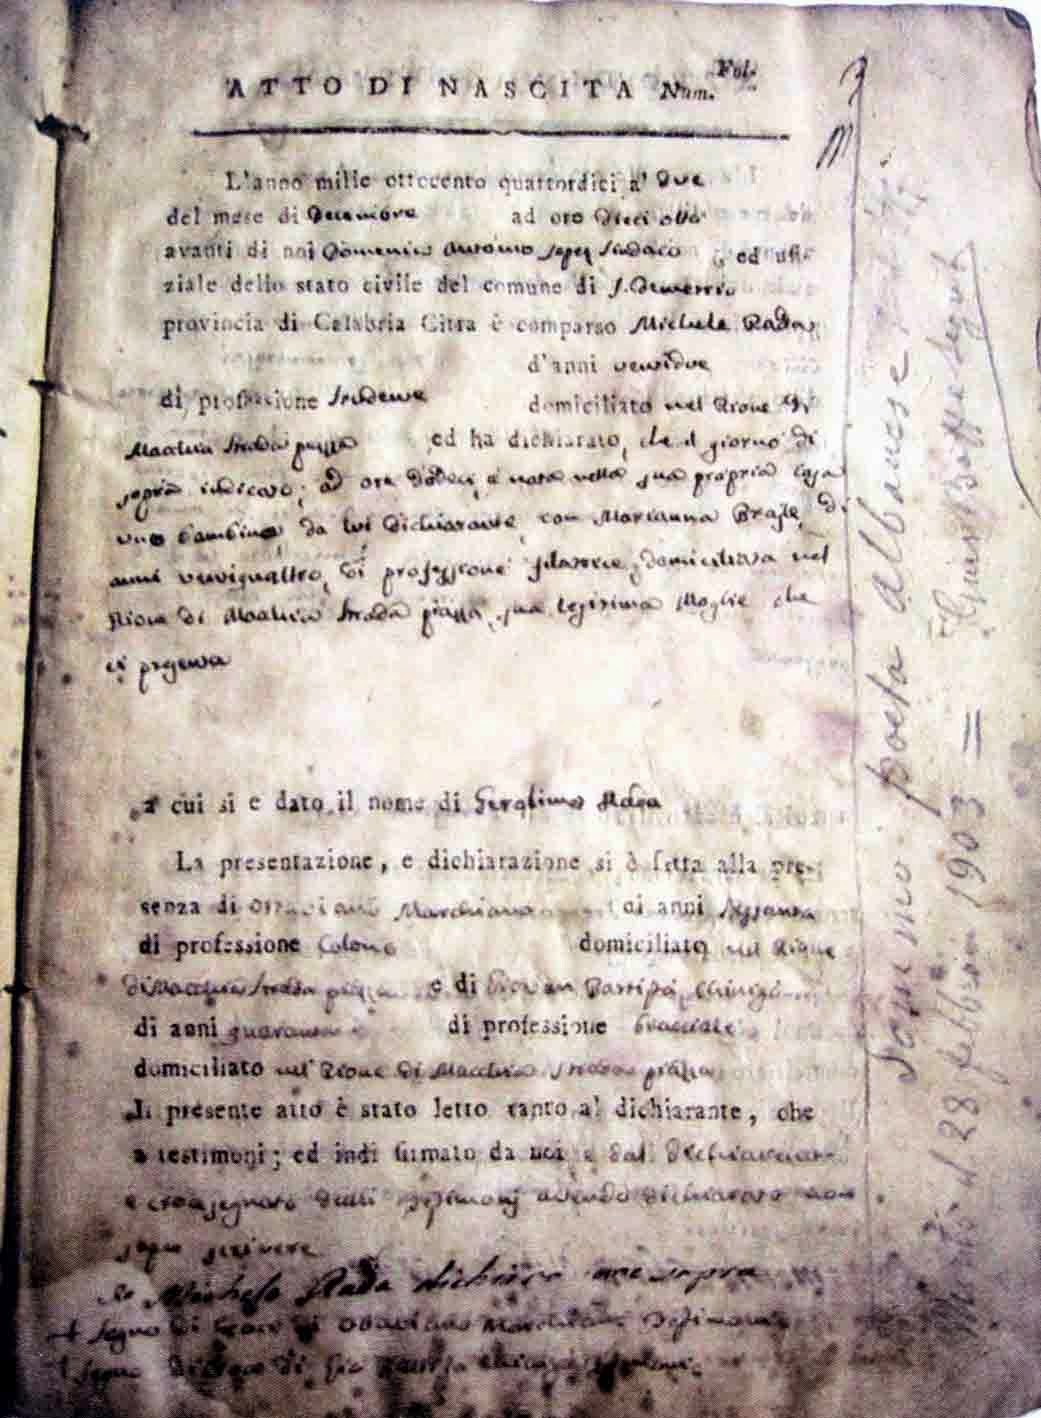 ATTO DI NASCITA Num. Fol.
L'anno mille ottocento quattordici a' due
del mese di Decembre ad ore dieci otto
avanti di noi Domenico Antonio Lopez Sindaco ed uffi-
ziale dello stato civile del comune di S. Demetrio
provincia di Calabria Citra è comparso Michele Rada
d'anni ventidue
di professione domiciliato nel Rione di
Macchia strada piazza ed ha dichiarato, che il giorno di
sopra indicato, ad ore dodeci, è nato nella sua propria casa
uno bambino da lui dichiarante, con Marianna Braile, di
anni ventiquattro, di professione filatrice, domiciliata nel
Rione di Macchia strada piazza, sua legitima Moglie che
ci presenta
a cui si e dato il nome di Serafino Rada
La presentazione, e dichiarazione si è fatta alla pre-
senza di Ottaviano Marchiano di anni sessanta
di professione Colono domiciliato nel Rione
di Macchia strada piazza e di Giovan Battista Chinigò
di anni quaranta di professione bracciale
domiciliato nel Rione di Macchia strada piazza
Il presente atto è stato letto tanto al dichiarante, che
a testimonj; ed indi firmato da noi e dal dichiarante
e crocesegnato dalli testimonj avendo dichiarato non
saper scrivere
Io Michele Rada dichiaro come sopra
+ Segno di Croce di Ottaviano Marchianò Testimonio
+ Segno di Croce di Gio Battista Chinigò
Sommo poeta albanese
Morto il 28 febbraio 1903 =